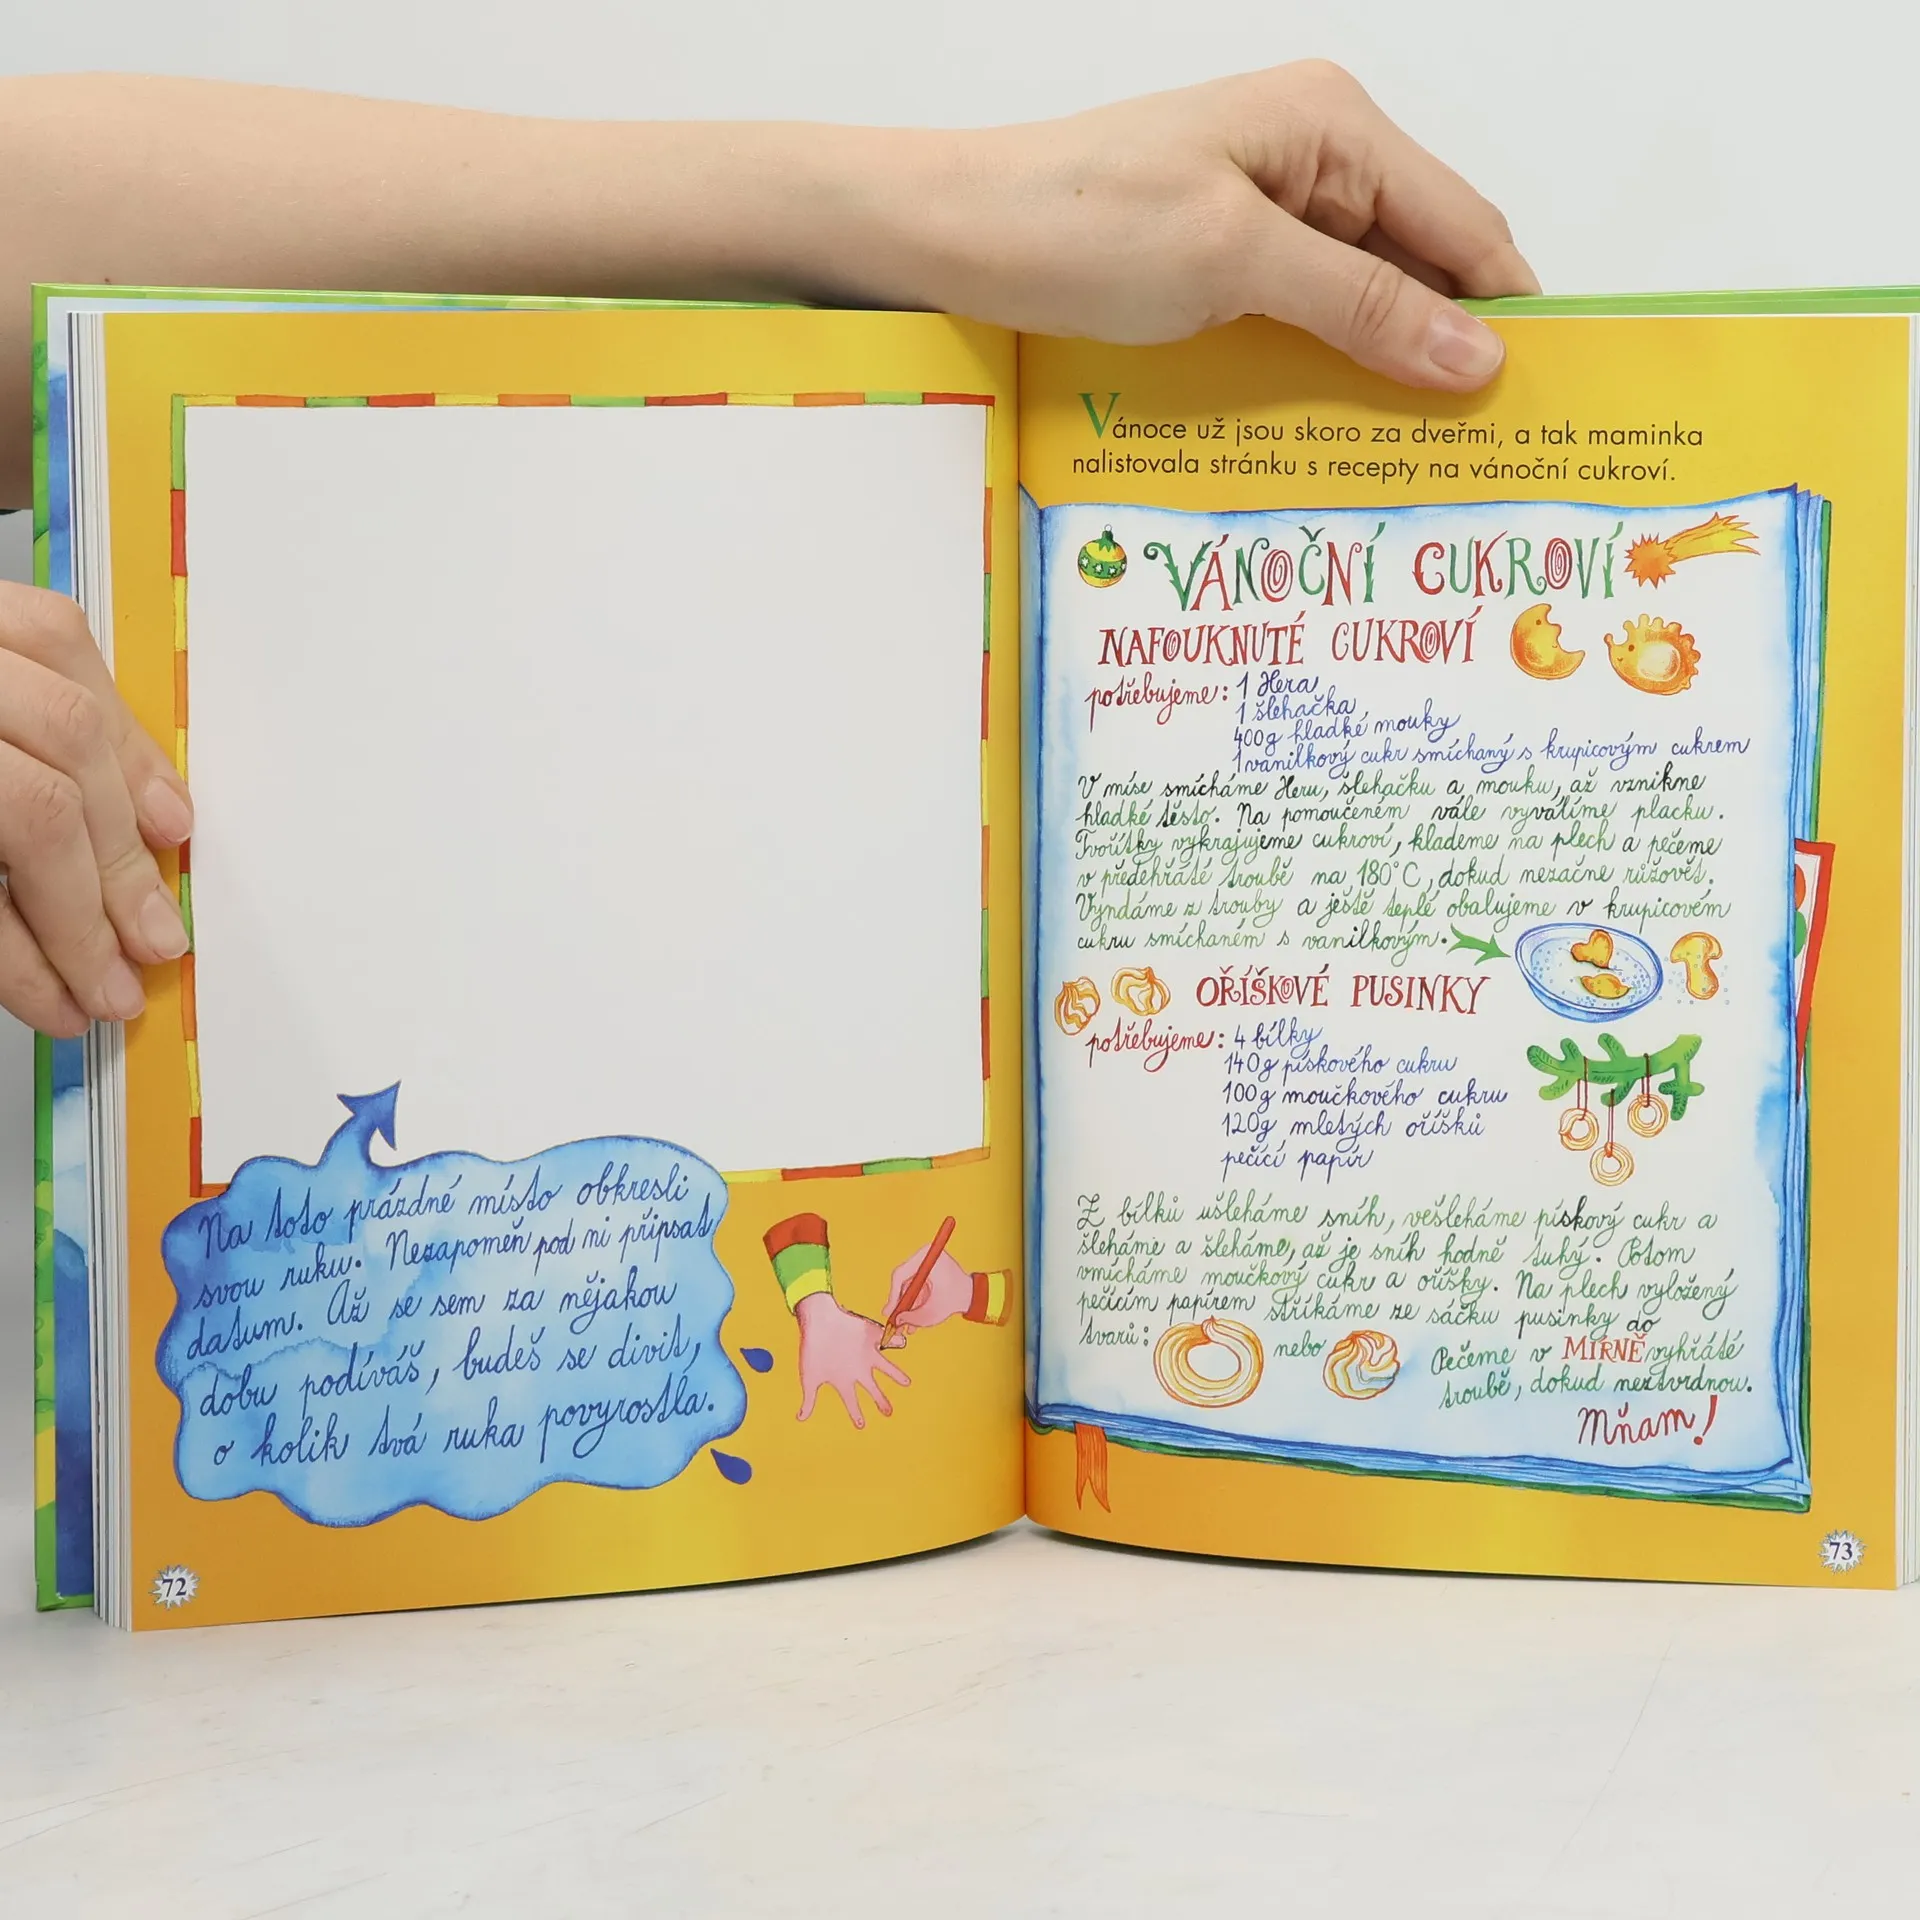 Na toto prázdné místo obkresli
svou ruku. Nezapomeň pod ni připsat
datum. Až se sem za nějakou
dobu podíváš, budeš se divit,
o kolik tvá ruka povyrostla.
72
Vánoce už jsou skoro za dveřmi, a tak maminka
nalistovala stránku s recepty na vánoční cukroví.
VÁNOČNÍ CUKROVÍ
NAFOUKNUTÉ CUKROVÍ
potřebujeme: 1 Hera
1 šlehačka
400g hladké mouky
1 vanilkový cukr smíchaný s krupicovým cukrem
V míse smícháme Heru, šlehačku a mouku, až vznikne
hladké těsto. Na pomoučeném vále vyválíme placku.
Tvořítky vykrajujeme cukroví, klademe na plech a pečeme
v předehřáté troubě na 180°C, dokud nezačne růžovět.
Vyndáme z trouby a ještě teplé obalujeme v krupicovém
cukru smíchaném s vanilkovým.
OŘÍŠKOVÉ PUSINKY
potřebujeme: 4 bílky
140g pískového cukru
100g moučkového cukru
120g mletých oříšků
pečící papír
Z bílků ušleháme sníh, vešleháme pískový cukr a
šleháme a šleháme, až je sníh hodně tuhý. Potom
vmícháme moučkový cukr a oříšky. Na plech vyložený
pečícím papírem stříkáme ze sáčku pusinky do
tvarů: nebo Pečeme v MÍRNĚ vyhřáté
troubě, dokud neztvrdnou.
Mňam!
73